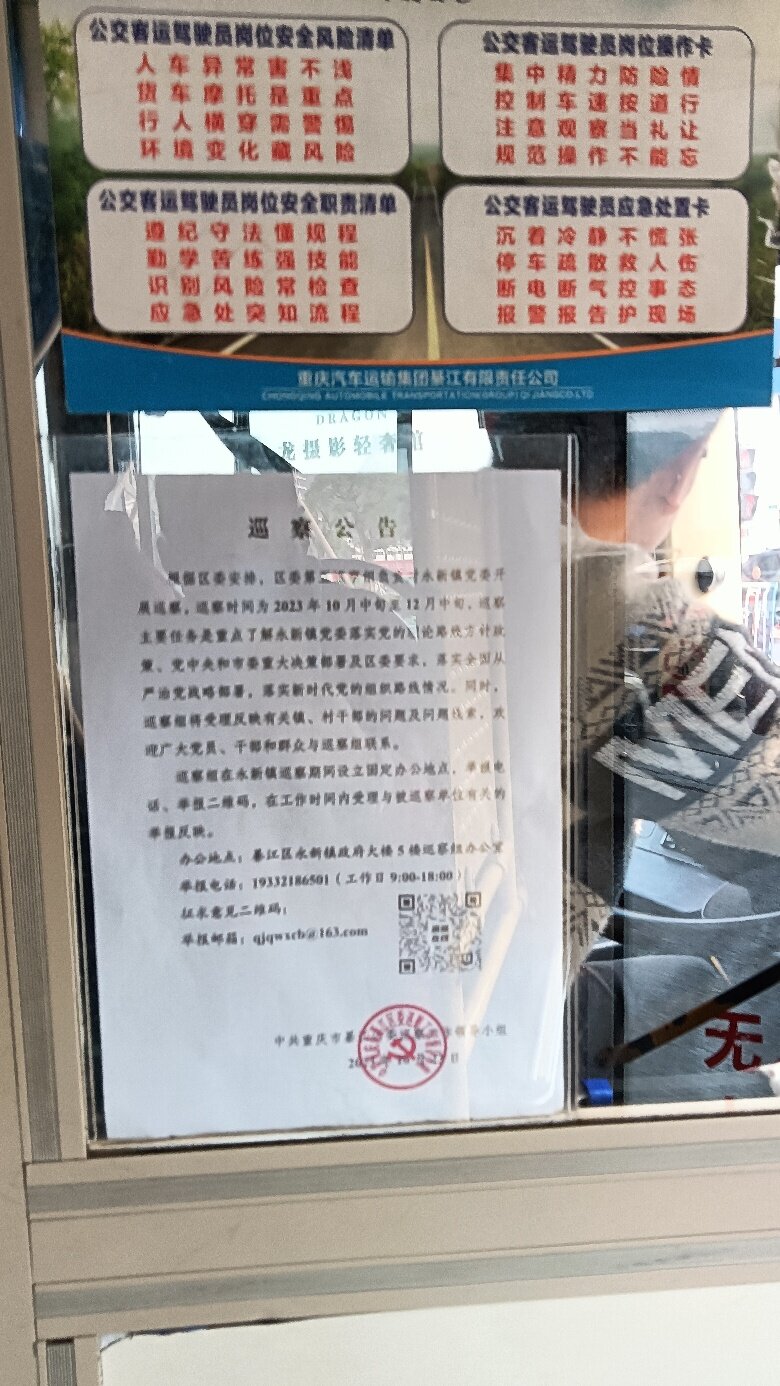 公交客运驾驶员岗位安全风险清单
人车异常害不浅
货车摩托是重点
行人横穿需警惕
环境变化藏风险
公交客运驾驶员岗位操作卡
集中精力防险情
控制车速按道行
注意观察当礼让
规范操作不能忘
公交客运驾驶员岗位安全职责清单
遵纪守法懂规程
勤学苦练强技能
识别风险常检查
应急处突知流程
公交客运驾驶员应急处置卡
沉着冷静不慌张
停车疏散救人伤
断电断气控事态
报警报告护现场
重庆汽车运输集团綦江有限责任公司
CHONGQING AUTOMOBILE TRANSPORTATION(GROUP)QIJIANGCO.LTD
DRAGON
龙摄影轻奢馆
巡察公告
根据区委安排，区委第 永新镇党委开
展巡察，巡察时间为2023年10月中旬至12月中旬。巡察
主要任务是重点了解永新镇党委落实党的理论路线方针政
策、党中央和市委重大决策部署及区委要求，落实全面从
严治党战略部署，落实新时代党的组织路线情况。同时，
巡察组将受理反映有关镇、村干部的问题及问题线索，欢
迎广大党员、干部和群众与巡察组联系。
巡察组在永新镇巡察期间设立固定办公地点、举报电
话、举报二维码，在工作时间内受理与被巡察单位有关的
举报反映。
办公地点：綦江区永新镇政府大楼5楼巡察组办公室
举报电话：19332186501（工作日9:00-18:00）
征求意见二维码：
举报邮箱：qjqwxcb@163.com
中共重庆市綦 领导小组
无